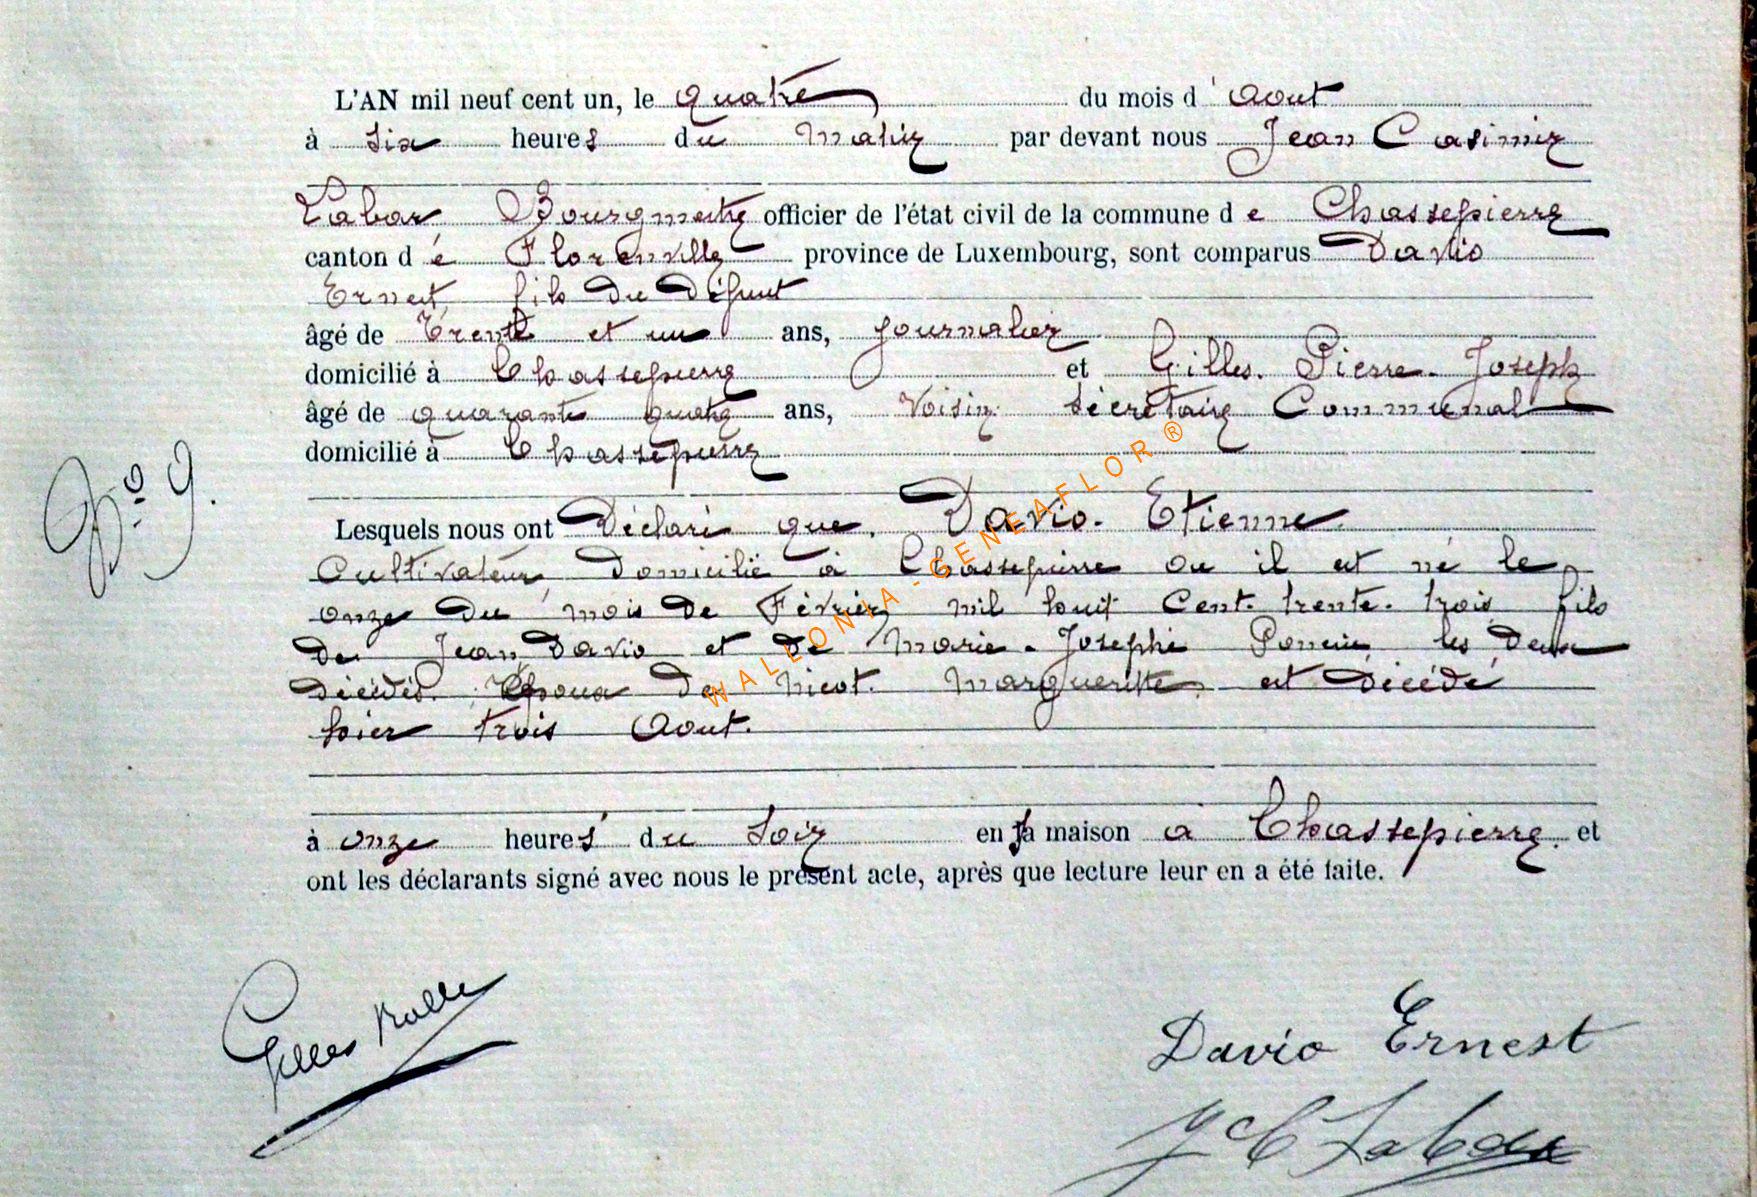 L'AN mil neuf cent un, le quatre du mois d'Aout
à six heures du matin par devant nous Jean Casimir
Labar Bourgmestre officier de l'état civil de la commune de Chassepierre
canton dé Florenville province de Luxembourg, sont comparus Davio
Ernest, fils du défunt
âgé de trente et un ans, journalier
domicilié à Chassepierre et Gilles. Pierre. Joseph
âgé de quarante quatre ans, voisin secrétaire Communal
domicilié à Chassepierre
No 9.
Lesquels nous ont Déclaré que. Davio. Etienne.
Cultivateur, domicilié à Chassepierre ou il est né le
onze du mois de Février mil huit Cent. trente. trois, fils
de Jean Davio et de Marie. Josephe Poncin les deux
décédés. Epoux de Nicot. Margueritte, est décédé
hier trois Aout.
à onze heures du soir en sa maison a Chassepierre. et
ont les déclarants signé avec nous le présent acte, après que lecture leur en a été faite.
WALLONIA-GENEAFLOR ®
Gilles
Davio Ernest
J C Labar